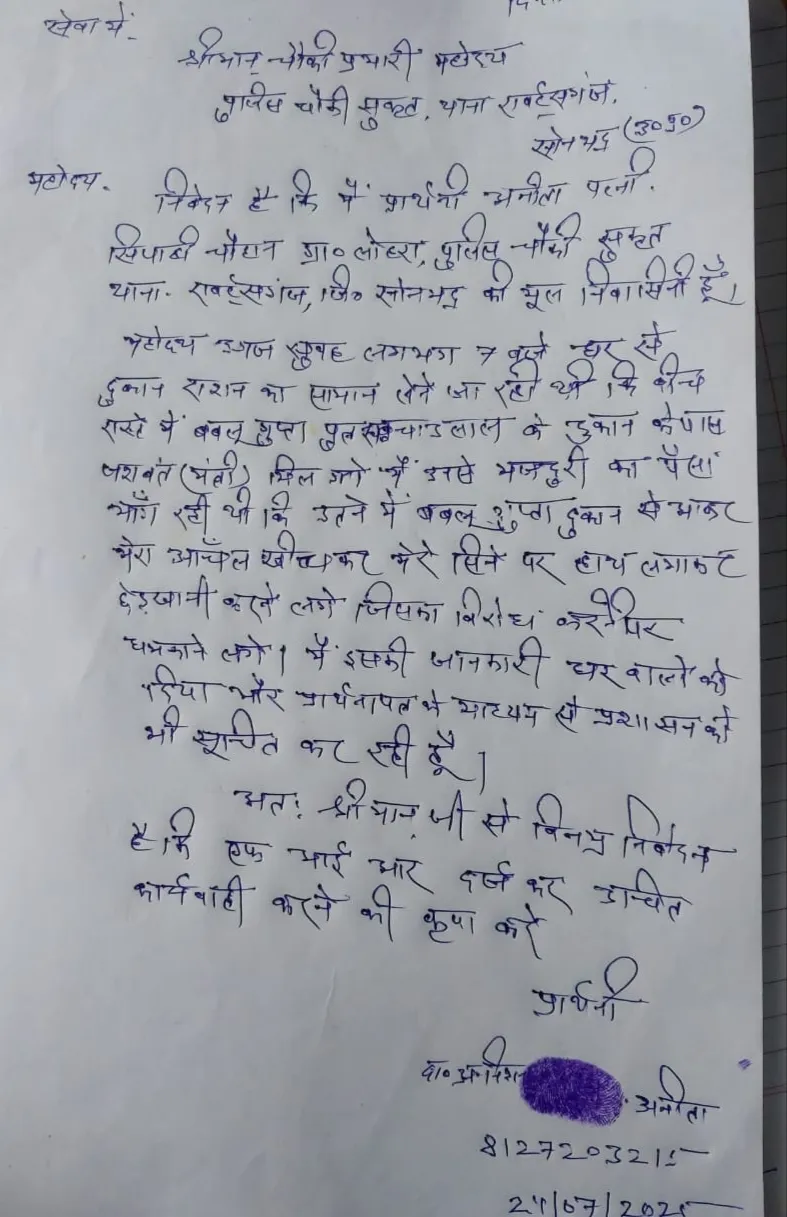 सेवा में,
श्रीमान् चौकी प्रभारी महोदय
पुलिस चौकी सुकृत, थाना रावर्ट्सगंज,
सोनभद्र (उ०प्र०)
महोदय,
निवेदन है कि मैं प्रार्थनी अनीता पत्नी
सिपाही चौहान ग्रा० लोहरा, पुलिस चौकी सुकृत
थाना- रावर्ट्सगंज, जि० सोनभद्र की मूल निवासिनी हूँ।
महोदय आज सुबह लगभग 7 बजे घर से
दुकान राशन का सामान लेने जा रही थी कि बीच
रास्ते में बबलू गुप्ता पुत्र लाल के दुकान के पास
यशवंत (मंत्री) मिल गये मैं उनसे मजदुरी का पैसा
माँग रही थी कि इतने में बबलू गुप्ता दुकान से आकर
मेरा आँचल खीचकर मेरे सिने पर हाथ लगाकर
छेड़खानी करने लगे जिसका विरोध करने पर
धमकाने लगे। मैं इसकी जानकारी घर वालो को
दिया और प्रार्थनापत्र के माध्यम से प्रशासन को
भी सूचित कर रही हूँ।
अतः श्रीमान् जी से विनम्र निवेदन
है कि एफ आई आर दर्ज कर उचित
कार्यवाही करने की कृपा करे
प्रार्थनी
अनीता
8127203215
24/07/2025